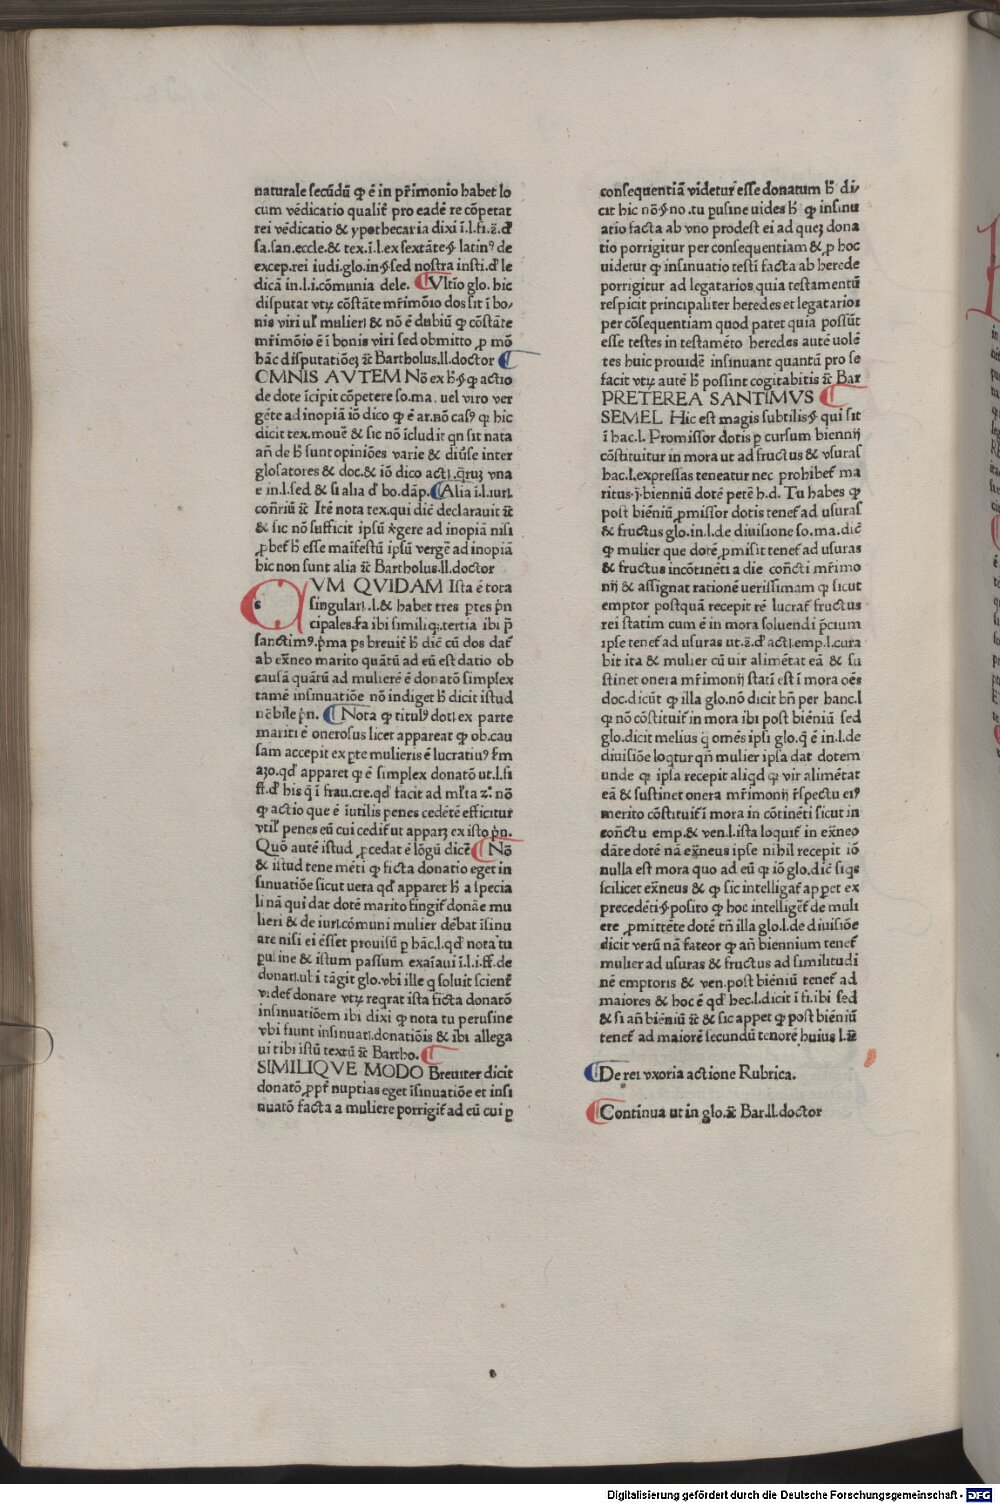 naturale secūdū ꝙ ē in pr̄imonio habet lo
cum vēdicatio qualit̄ pro eadē re cōpetat
rei vēdicatio & ypothecaria dixi ī.l.fi.ē.đ
sa.san.eccle.& tex.ī.l.ex sextāte.§ latinꝰ de
excep.rei iudi.glo.in.§ sed nostra insti.đ le
dicā in.l.i.cōmunia dele. ¶ Vltīo glo. hic
disputat vtꝝ cōstāte mr̄imōio dos sit ī bo/
nis viri ul̄ mulierꝭ & nō ē dubiū ꝙ cōstāte
mr̄imōio ē ī bonis viri sed obmitto ꝓ mō
hāc disputatiōeꝫ ⁊c̄ Bartholus.ll.doctor ¶
OMNIS AVTEM Nō ex h̄.§ ꝙ actio
de dote īcipit cōpetere so.ma. uel viro ver
gēte ad inopiā iō dico ꝙ ē ar.nō casꝰ ꝙ hic
dicit tex.mouē & sic nō īcludit qn sit nata
an̄ de h̄ sunt opiniōes varie & diu̇se inter
glosatores & doc.& iō dico actꝭ.q̄ruꝫ vna
e in.l.sed & si alia đ bo.dāp. ¶ Alia ī.l.iurꝭ.
con̄riū ⁊c̄ Itē nota tex.qui dic̄ declarauit ⁊c̄
& sic nō sufficit ipsū v̓gere ad inopiā nisi
ꝓbet̄ h̄ esse maīfestū ipsū vergē ad inopiā
hic non sunt alia ⁊c̄ Bartholus.ll.doctor
CVM QVIDAM Ista ē tota
singularꝭ.l.& habet tres ꝑtes p̄n
cipales.sa ibi simili q;.tertia ibi p̄
sanctimꝰ.p̄ma ps breuit̄ h̄ dic̄ cū dos dat̄
ab ex̄neo marito quātū ad eū est datio ob
causā quātū ad mulierē ē donatō simplex
tamē insinuatiōe nō indiget h̄ dicit istud
nēbile p̄n. ¶ Nota ꝙ titulꝰ dotꝭ ex parte
mariti ē onerosus licet appareat ꝙ ob.cau
sam accepit ex ꝑte mulieris ē lucratiuꝰ s̄m
azo.qđ apparet ꝙ ē simplex donatō ut.l.si
ff.đ his q̄ ī frau.cre.qđ facit ad ml̄ta z͛. nō
ꝙ actio que ē īutilis penes cedētē efficitur
vtil̄ penes eū cui cedit̄ ut apparꝫ ex isto p̄n.
Quō autē istud ꝓcedat ē lōgū dicē ¶ Nō
& istud tene mēti ꝙ ficta donatio eget in
sinuatiōe sicut uera qđ apparet h̄ a specia
li nā qui dat dotē marito fingit̄ donāe mu
lieri & de iurꝭ.cōmuni mulier dēbat īsinu
are nisi ei ēsset prouisū ꝑ hāc.l.qđ nota tu
pusine & istum passum exaīaui ī.l.i.ff.de
donatꝭ.ul i tāgit glo.vbi ille q soluit scient̄
videt̄ donare vtꝝ reqrat ista ficta donatō
insinuatiōem ibi dixi ꝙ nota tu perusine
vbi fiunt insinuatꝭ.donatiōis & ibi allega
ui tibi istū textū ⁊c̄ Bartho. ¶
SIMILIQVE MODO Breuiter dicit
donatō ꝓpt̄ nuptias eget īsinuatiōe et insi
nuatō facta a muliere porrigit̄ ad eū cui ꝑ
consequentiā videtur esse donatum h̄ di/
cit hic nō §.no.tu pusine uides h̄ ꝙ insinu
atio facta ab vno prodest ei ad queꝫ dona
tio porrigitur per consequentiam & ꝑ hoc
uidetur ꝙ insinuatio testī facta ab herede
porrigitur ad legatarios quia testamentū
respicit principaliter heredes et legatarios
per cōsequentiam quod patet quia possūt
esse testes in testamēto heredes autē uolē
tes huic prouidē insinuant quantū pro se
facit vtꝝ autē h̄ possint cogitabitis ⁊c̄ Bar
PRETEREA SANTIMVS ¶
SEMEL Hic est magis subtilis § qui sit
ī hac.l. Promissor dotis ꝑ cursum biennij
cōstituitur in mora ut ad fructus & vsuras
hac.l.expressas teneatur nec prohibet̄ ma
ritus.j.bienniū dotē petē h.d. Tu habes ꝙ
post biēniū ꝓmissor dotis tenet̄ ad usuras
& fructus glo.in.l.de diuisione so.ma.dic̄
ꝙ mulier que dotē ꝓmisit tenet̄ ad usuras
& fructus incōtinēti a die con̄cti mr̄imo
nij & assignat rationē uerissimam ꝙ sicut
emptor postquā recepit rē lucrat̄ fructus
rei statim cum ē in mora soluendi p̄cium
ipse tenet̄ ad usuras ut.ē.đ actꝭ.emp.l.cura
bit ita & mulier cū uir alimētat eā & su
stinet onera mr̄imonij statī est ī mora oēs
doc.dicūt ꝙ illa glo.nō dicit bn̄ per hanc.l
ꝙ nō cōstituit̄ in mora ibi post biēniū sed
glo.dicit melius q̄ omēs ipsi glo.q̄ ē in.l.de
diuisiōe loqtur qn̄ mulier ipsa dat dotem
unde ꝙ ipsa recepit aliqd ꝙ vir alimētat
eā & sustinet onera mr̄imonij r̄spectu eiꝰ
merito cōstituit̄ ī mora in cōtinēti sicut in
con̄ctu emp.& ven.l.ista loquit̄ in ex̄neo
dāte dotē nā ex̄neus ipse nihil recepit iō
nulla est mora quo ad eū ꝙ iō glo.dic̄ siqs
scilicet ex̄neus & ꝙ sic intelligat̄ apꝑet ex
precedēti.§ posito ꝙ hoc intelliget̄ de muli
ere ꝓmittēte dotē tn̄ illa glo.l.de diuisiōe
dicit verū nā fateor ꝙ an̄ biennium tenet̄
mulier ad usuras & fructus ad similitudi
nē emptoris & ven.post biēniū tenet̄ ad
maiores & hoc ē qđ hec.l.dicit ī fi.ibi sed
& si an̄ biēniū ⁊c̄ & sic appet ꝙ post biēniū
tenet̄ ad maiorē secundū tenorē huius l.⁊c̄
¶ De rei vxoria actione Rubrica.
¶ Continua ut in glo.⁊c̄ Bar.ll.doctor
Digitalisierung gefördert durch die Deutsche Forschungsgemeinschaft - DFG